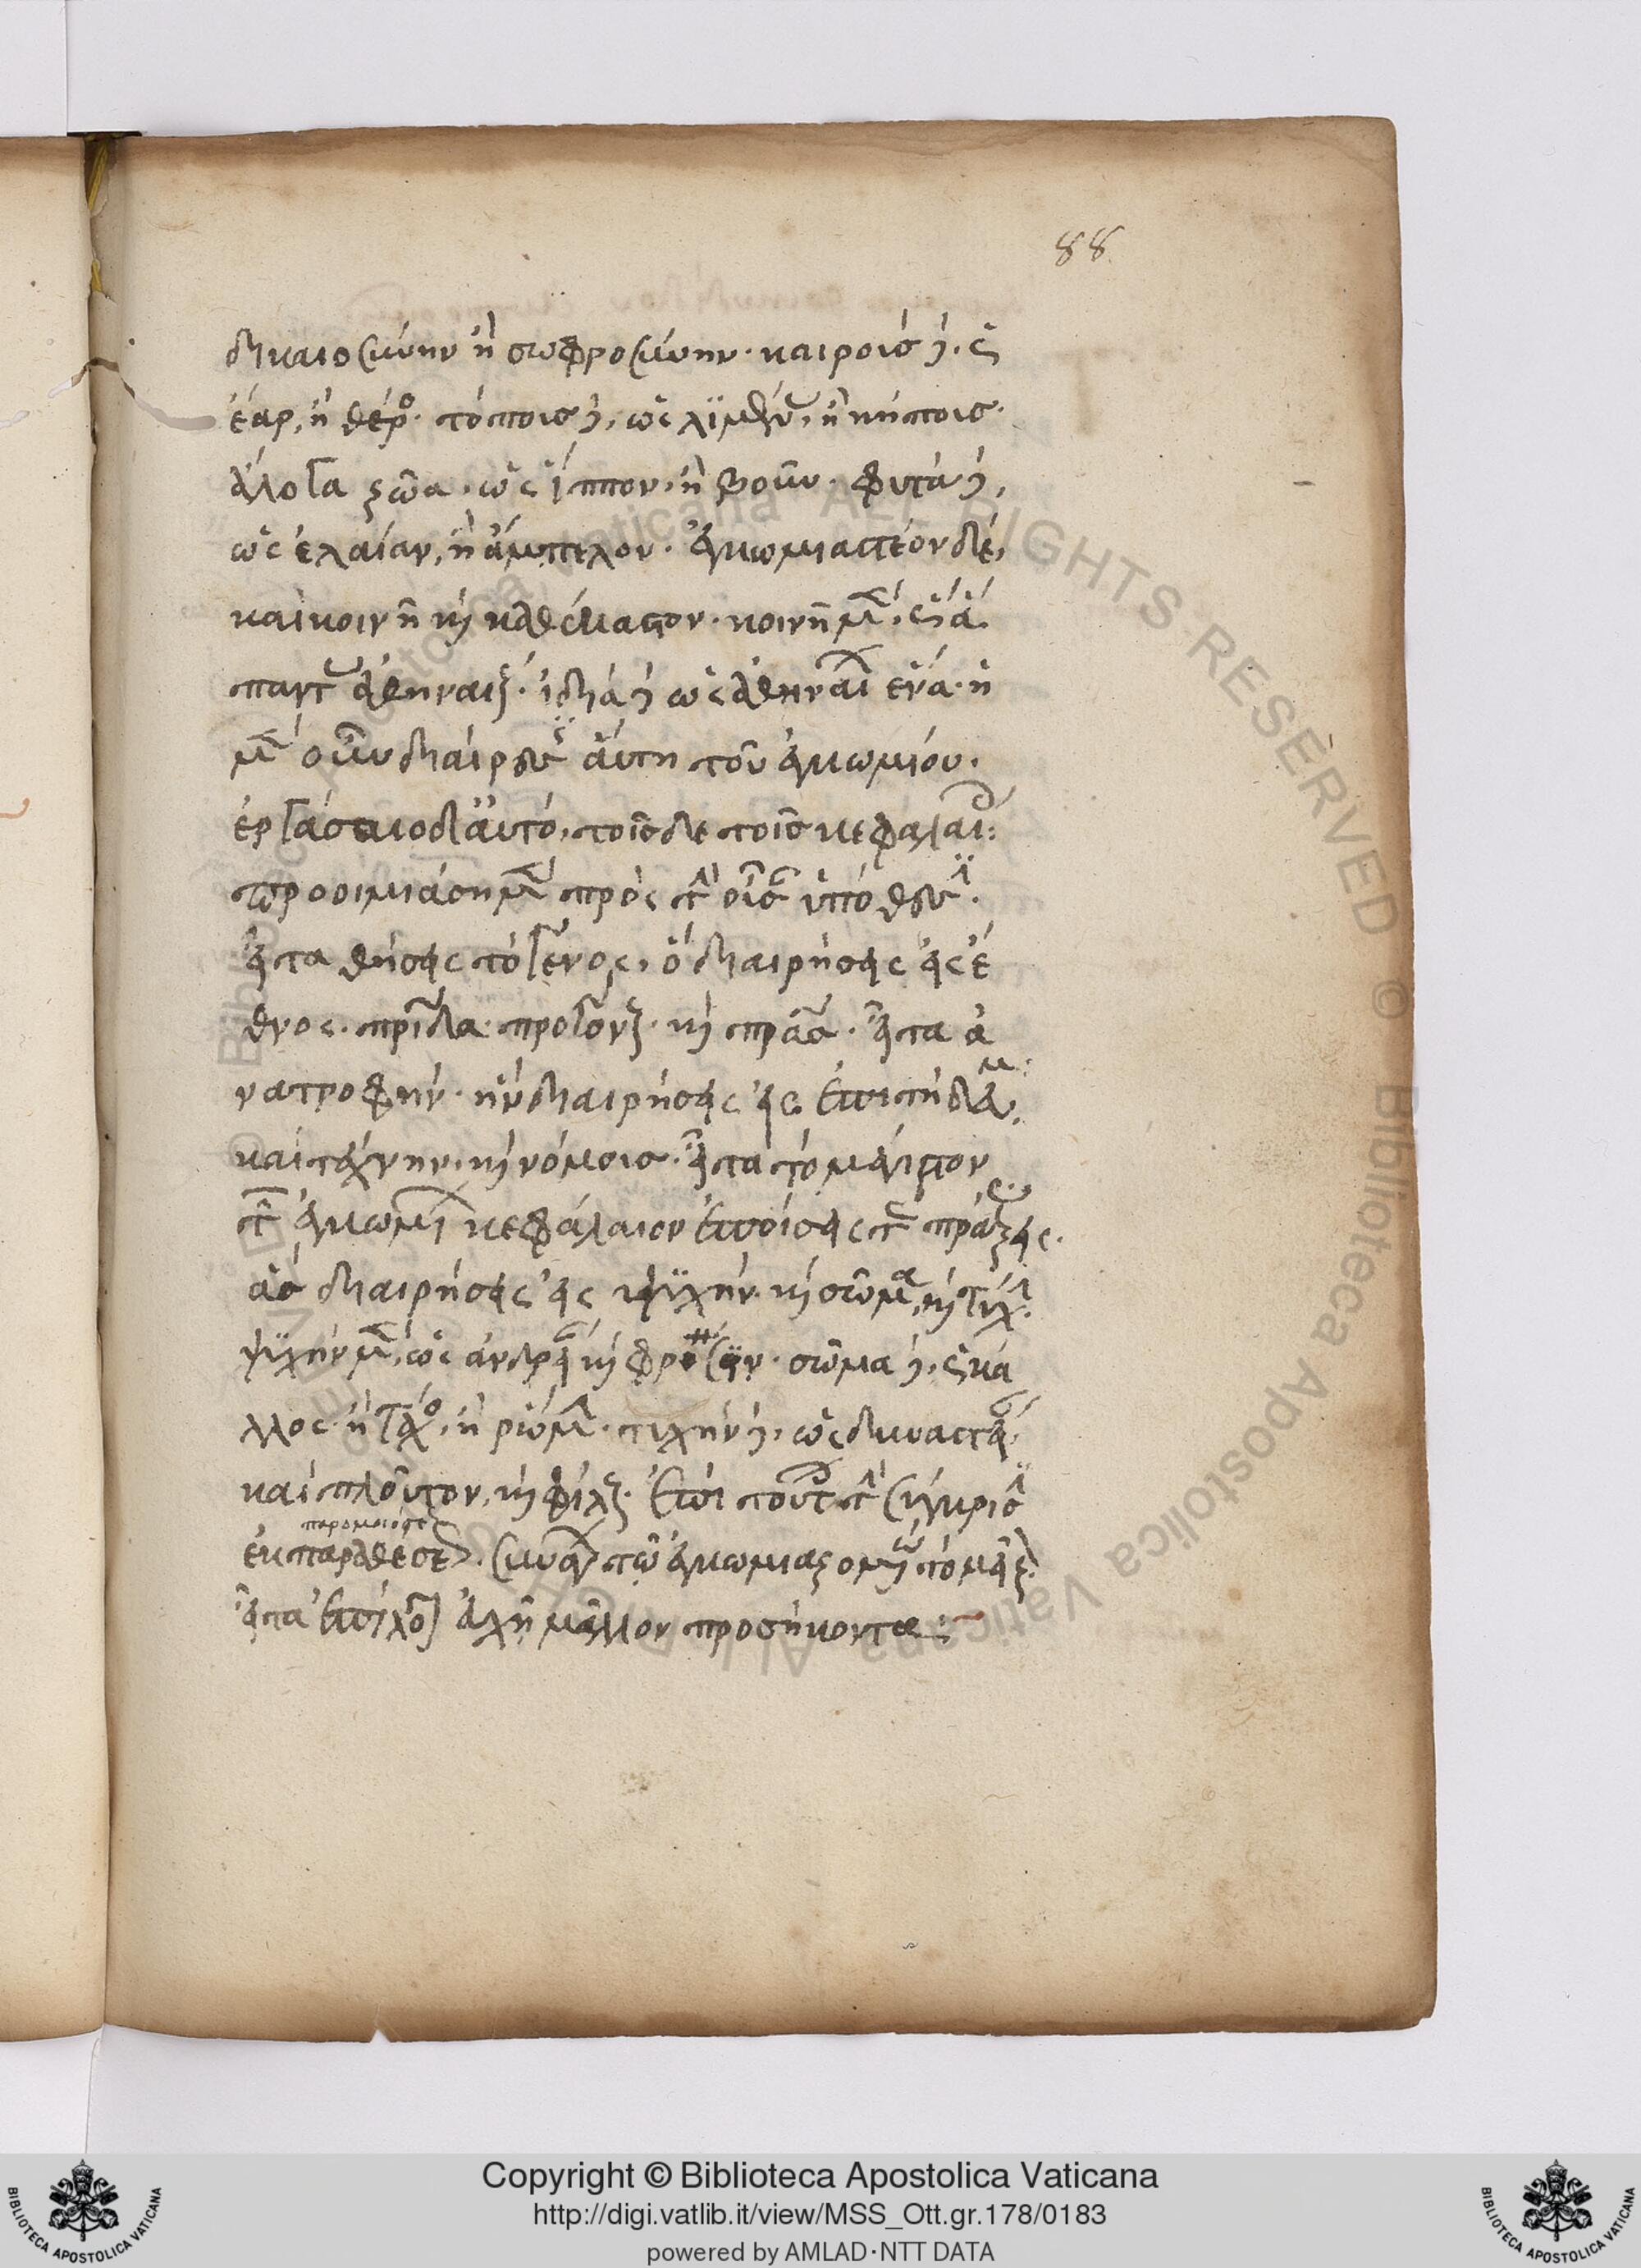 88
δικαιοσύνην ἢ σωφροσύνην· καιροὺς δὲ, ὡς
ἔαρ, ἢ θέρος· τόπους δὲ, ὡς λιμένας, ἢ κήπους·
ἄλογα ζῶα, ὡς ἵππον, ἢ βοῦν· φυτὰ δὲ,
ὡς ἐλαίαν, ἢ ἄμπελον· ἐγκωμιαστέον δὲ,
καὶ κοινῆ καὶ καθέκαστον· κοινῆ μὲν, ὡς ἅ
παντας ἀθηναίους· ἰδία δὲ ὡς ἀθηναῖον ἕνα· ἡ
μὲν οὖν διαίρεσις αὕτη τοῦ ἐγκωμίου·
ἐργάσαιο δ' αὐτὸ, τοῖσδε τοῖς κεφαλαίοις:
προοιμιάση μὲν πρὸς τὴν οὖσαν ὑπόθεσιν·
εἶτα θήσεις τὸ γένος, ὃ διαιρήσεις εἰς ἔ
θνος· πατρίδα· προγόνους· καὶ πατέρας· εἶτα ἀ
νατροφὴν· ἣν διαιρήσεις εἰς ἐπιτηδεύματα
καὶ τέχνην, καὶ νόμους· εἶτα τὸ μέγιστον
τῶν ἐγκωμίων κεφάλαιον ἐποίσεις τὰς πράξεις·
ἃς διαιρήσεις εἰς ψυχὴν καὶ σῶμα, καὶ τύχην·
ψυχὴν μὲν, ὡς ἀνδρείαν καὶ φρόνησιν· σῶμα δὲ, ὡς κά
λλος ἢ τάχος, ἢ ῥώμην· τύχην δὲ, ὡς δυναστείαν,
καὶ πλοῦτον, καὶ φίλους· ἐπὶ τούτοις τὴν σύγκρισιν
ἐκ παραθέσεως συνάγων τῶ ἐγκωμιαζομένω τὸ μεῖζον·
εἶτα ἐπίλογον εὐχῆ μᾶλλον προσήκοντα:
Copyright © Biblioteca Apostolica Vaticana
http://digi.vatlib.it/view/MSS_Ott.gr.178/0183
powered by AMLAD·NTT DATA
BIBLIOTECA APOSTOLICA VATICANA
BIBLIOTECA APOSTOLICA VATICANA
© Biblioteca Apostolica Vaticana ALL RIGHTS RESERVED